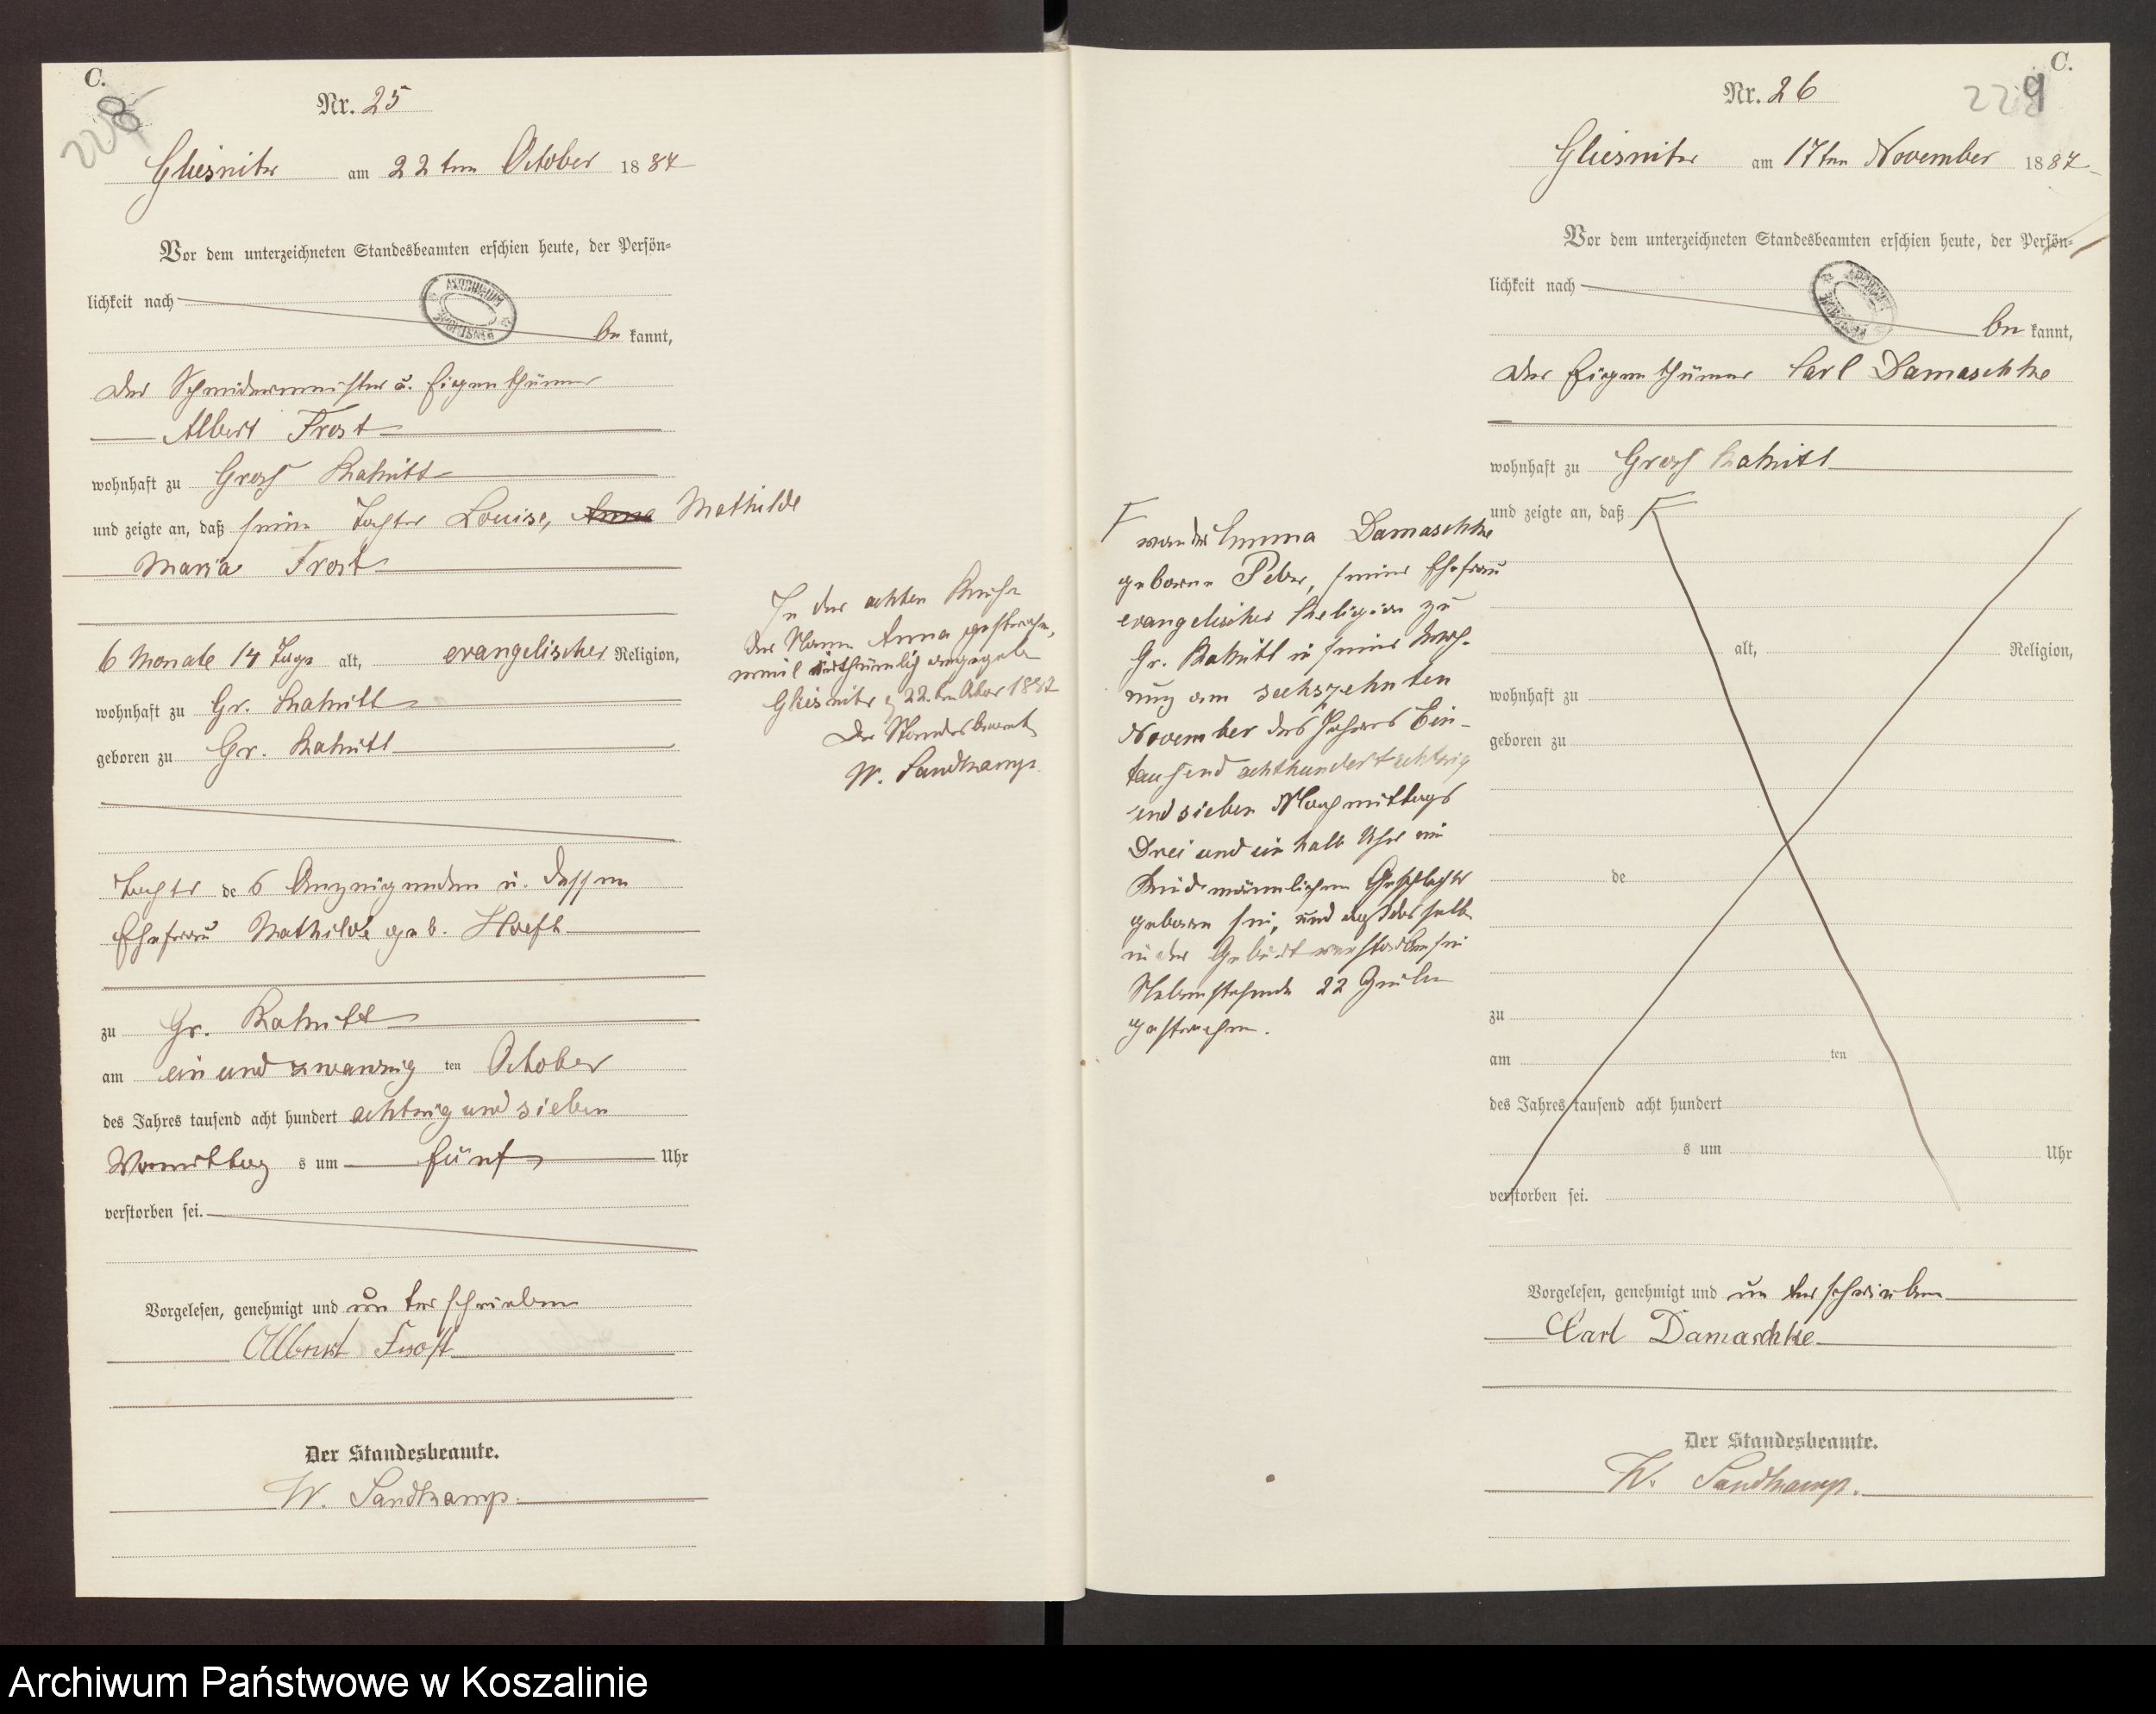 C.
228
Nr. 25
Gliesnitz am 22ten October 1887
Vor dem unterzeichneten Standesbeamten erschien heute, der Persön=
lichkeit nach
be kannt,
der Schneidermeister u. Eigenthümer
Albert Frost
wohnhaft zu Groß Rakitt
und zeigte an, daß seine Tochter Louise, Anna Mathilde
Maria Frost
6 Monate 14 Tage alt, evangelischer Religion,
wohnhaft zu Gr. Rakitt
geboren zu Gr. Rakitt
Tochter des Anzeigenden u. dessen
Ehefrau Mathilde geb. Hoeft
zu Gr. Rakitt
am ein und zwanzig ten October
des Jahres tausend acht hundert achtzig und sieben
Vormittag s um fünf Uhr
verstorben sei.
Vorgelesen, genehmigt und unterschrieben
Albert Frost
Der Standesbeamte.
W. Sandkamp.
In der achten Reihe
der Name Anna gestrichen,
weil irrthümlich angegeben
Gliesnitz, 22ten October 1887
Der Standesbeamte
W. Sandkamp.
C.
229
Nr. 26
Gliesnitz am 17ten November 1887
Vor dem unterzeichneten Standesbeamten erschien heute, der Persön=
lichkeit nach
be kannt,
der Eigenthümer Carl Damaschke
wohnhaft zu Groß Rakitt
und zeigte an, daß
alt, Religion,
wohnhaft zu
geboren zu
de
zu
am ten
des Jahres tausend acht hundert
s um Uhr
verstorben sei.
von der Emma Damaschke
geborene Peter, seiner Ehefrau
evangelischer Religion zu
Gr. Rakitt in seiner Woh-
nung am sechszehnten
November des Jahres Ein-
tausend achthundert achtzig
und sieben Nachmittags
Drei und ein halb Uhr ein
Kind männlichen Geschlechts
geboren sei, und daß dasselbe
in der Geburt verstorben sei
Nebenstehende 22 Zeilen
gestrichen.
Vorgelesen, genehmigt und unterschrieben
Carl Damaschke
Der Standesbeamte.
W. Sandkamp.
Archiwum Państwowe w Koszalinie